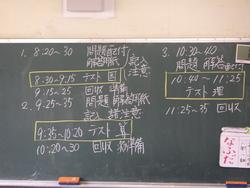 1. 8:20~30 問題配付 記入
解答用紙 注意
8:30-9:15 テスト 国
9:15~25 回収 準備
2. 9:25~35 問題 解答用紙
記入 注意
9:35-10:20 テスト 算
10:20~30 回収 準備
3. 10:30~40
問題 解答
10:40~11:25
テスト 理
11:25~35 回収
なふだ